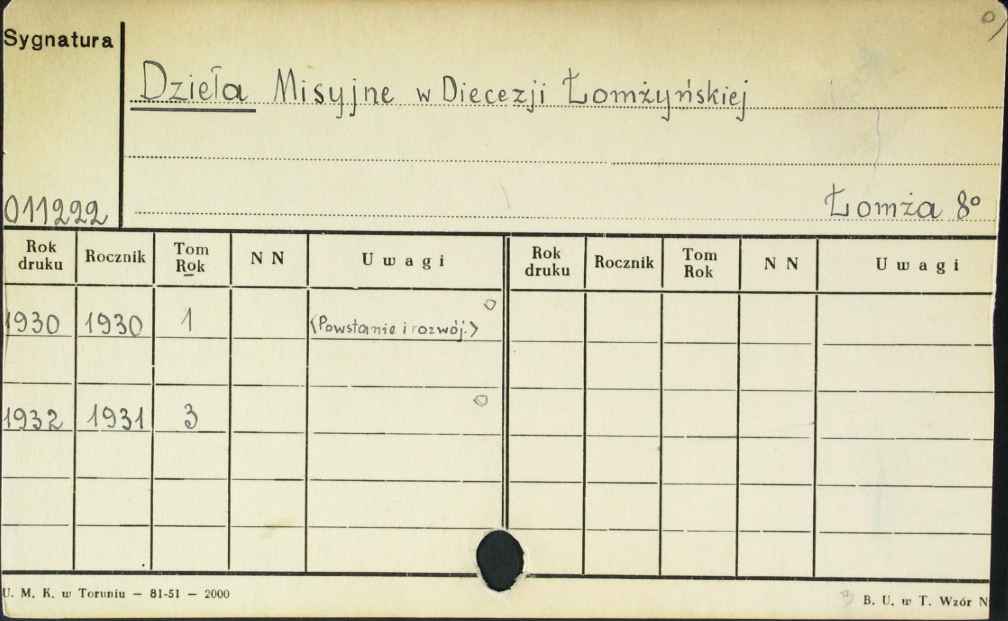 Sygnatura
Dzieła Misyjne w Diecezji Łomżyńskiej
011222
Łomża 8°
Rok druku Rocznik Tom Rok N N Uwagi Rok druku Rocznik Tom Rok N N Uwagi
1930 1930 1 <Powstanie i rozwój.>
1932 1931 3
U. M. K. w Toruniu — 81-51 — 2000
B. U. w T. Wzór N